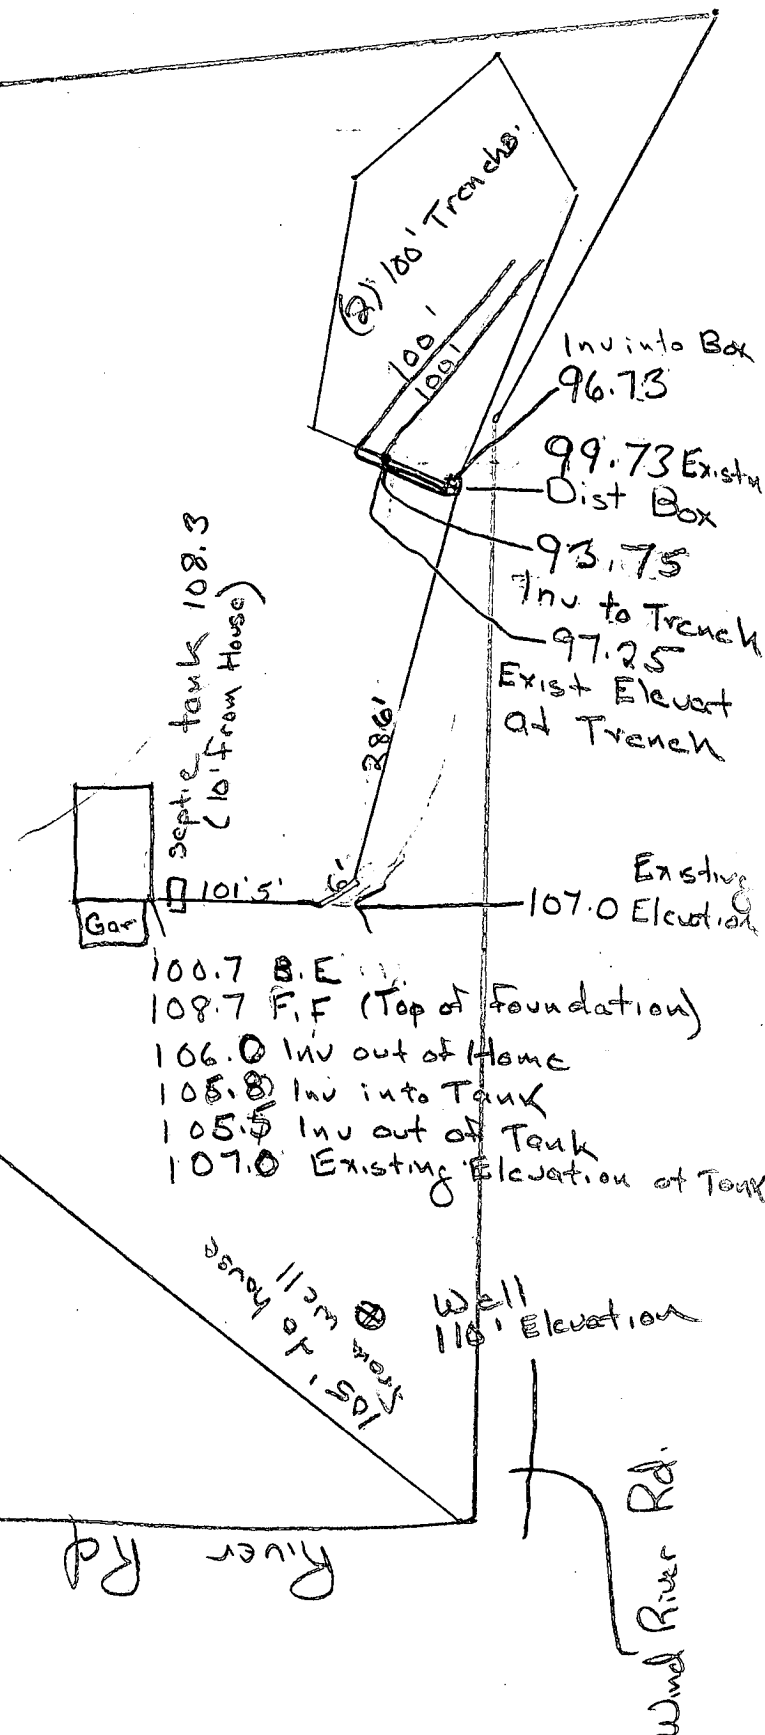 (2) 100' Trenches.
100'
100'
Inv into Box
96.73
99.73 Existn
Dist Box
93.75
Inv to Trench
97.25
Exist Elevat
at Trench
286'
septic tank 108.3
(10' from House)
101'5'
6'
Gar
Existing
107.0 Elevation
100.7 B.E
108.7 F.F (Top of Foundation)
106.0 Inv out of Home
105.8 Inv into Tank
105.5 Inv out of Tank
107.0 Existing Elevation at Tank
105' to house
from well
Well
110' Elevation
River Rd
Wind River Rd.